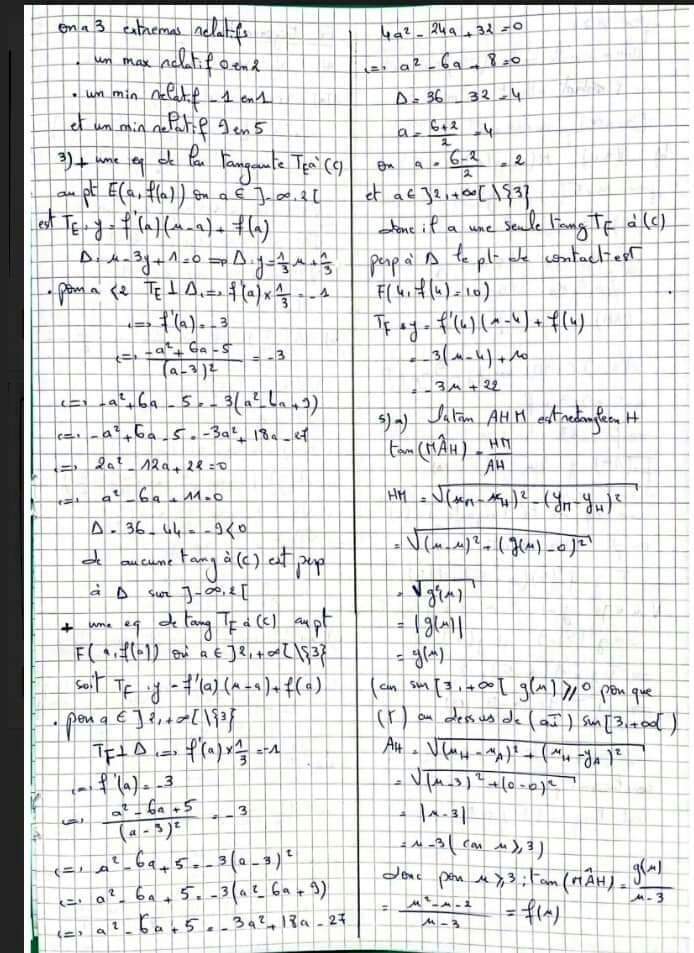 on a 3 extremas relatifs
. un max relatif 0 en 2
. un min relatif -1 en 1
et un min relatif 9 en 5
3) + une eq de la tangante T_E à (C)
au pt E(a, f(a)) où a ∈ ]-∞, 2[
est T_E: y = f'(a)(x-a) + f(a)
Δ: x - 3y + 1 = 0 => Δ: y = 1/3 x + 1/3
. pour a < 2 T_E ⊥ Δ <=> f'(a) × 1/3 = -1
<=> f'(a) = -3
<=> (-a² + 6a - 5)/(a-3)² = -3
<=> -a² + 6a - 5 = -3(a² - 6a + 9)
<=> -a² + 6a - 5 = -3a² + 18a - 27
<=> 2a² - 12a + 22 = 0
<=> a² - 6a + 11 = 0
Δ = 36 - 44 = -9 < 0
dc aucune tang à (C) est perp
à Δ sur ]-∞, 2[
+ une eq de tang T_F à (C) au pt
F(a, f(a)) où a ∈ ]2, +∞[ \ {3}
soit T_F: y = f'(a)(x-a) + f(a)
. pour a ∈ ]2, +∞[ \ {3}
T_F ⊥ Δ <=> f'(a) × 1/3 = -1
<=> f'(a) = -3
<=> (a² - 6a + 5)/(a-3)² = -3
<=> a² - 6a + 5 = -3(a-3)²
<=> a² - 6a + 5 = -3(a² - 6a + 9)
<=> a² - 6a + 5 = -3a² + 18a - 27
4a² - 24a + 32 = 0
<=> a² - 6a + 8 = 0
Δ = 36 - 32 = 4
a = (6+2)/2 = 4
ou a = (6-2)/2 = 2
et a ∈ ]2, +∞[ \ {3}
donc il a une seule tang T_F à (C)
perp à Δ le pt de contact est
F(4, f(4) = 10)
T_F: y = f'(4)(x-4) + f(4)
= -3(x-4) + 10
= -3x + 22
5) a) AHM est rectangle en H
tan(MÂH) = HM/AH
HM = √((x_M - x_H)² - (y_M - y_H)²)
= √((x-x)² + (g(x) - 0)²)
= √g²(x)
= |g(x)|
= g(x)
(car sur [3, +∞[ g(x) ≥ 0 parque
(Γ) au dessus de (oi) sur [3, +∞[)
AH = √((x_H - x_A)² + (x_H - y_A)²)
= √((x-3)² + (0-0)²)
= |x-3|
= x-3 (car x ≥ 3)
donc pour x ≥ 3: tan(MÂH) = g(x)/(x-3)
= (x² - x - 2)/(x-3) = f(x)